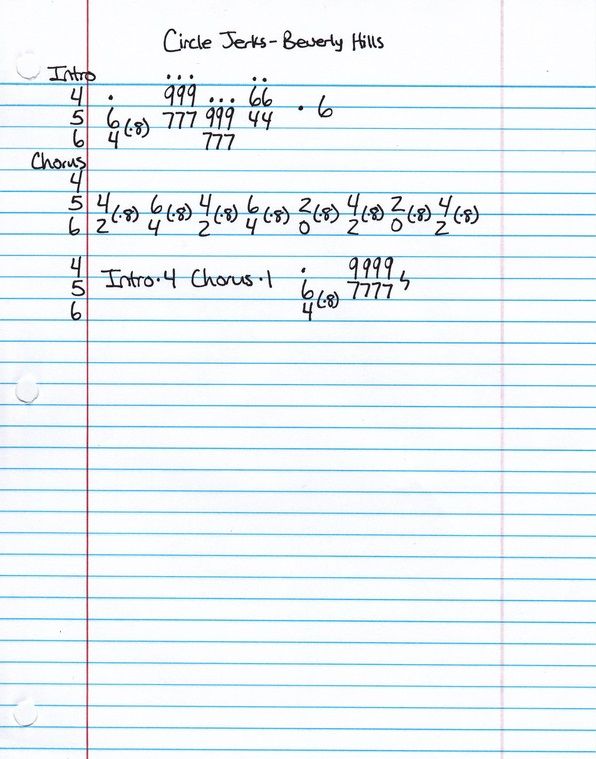 Circle Jerks - Beverly Hills
Intro
4 . 999 ... 66
5 6 (·8) 777 999 44 · 6
6 4 777
Chorus
4
5 4 (·8) 6 (·8) 4 (·8) 6 (·8) 2 (·8) 4 (·8) 2 (·8) 4 (·8)
6 2 4 2 4 0 2 0 2
4 . 9999
5 Intro·4 Chorus·1 6 (·8) 7777
6 4